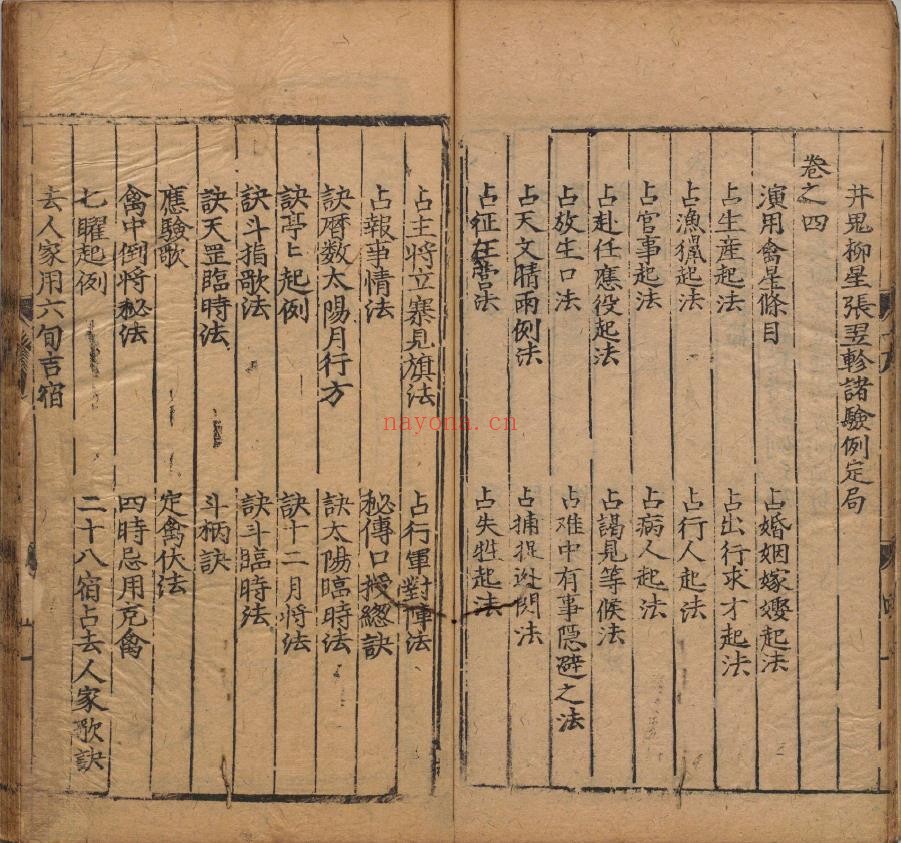 井鬼柳星張翌軫諸驗例定局
卷之四
演用禽星條目 占婚姻嫁娶起法
占生產起法 占出行求才起法
占漁獵起法 占行人起法
占官事起法 占病人起法
占赴任應役起法 占謁見等候法
占放生口法 占难中有事隠避之法
占天文晴雨例法 占捕捉逃閃法
占征在营法 占失牲起法
占主將立寨見旗法 占行軍對陣法
占報事情法 秘傳口授總訣
訣曆数太陽月行方 訣太陽臨時法
訣亭亭起例 訣十二月將法
訣斗指歌法 訣斗臨時法
訣天罡臨時法 斗柄訣
應驗歌 定禽伏法
禽中倒將秘法 四時忌用克禽
七曜起例 二十八宿占去人家歌訣
去人家用六旬吉宿
nayona.cn